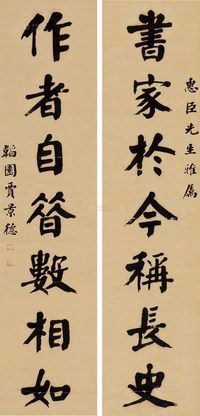 惠臣先生雅屬
書家於今稱長史
作者自昔數相如
韜園賈景德